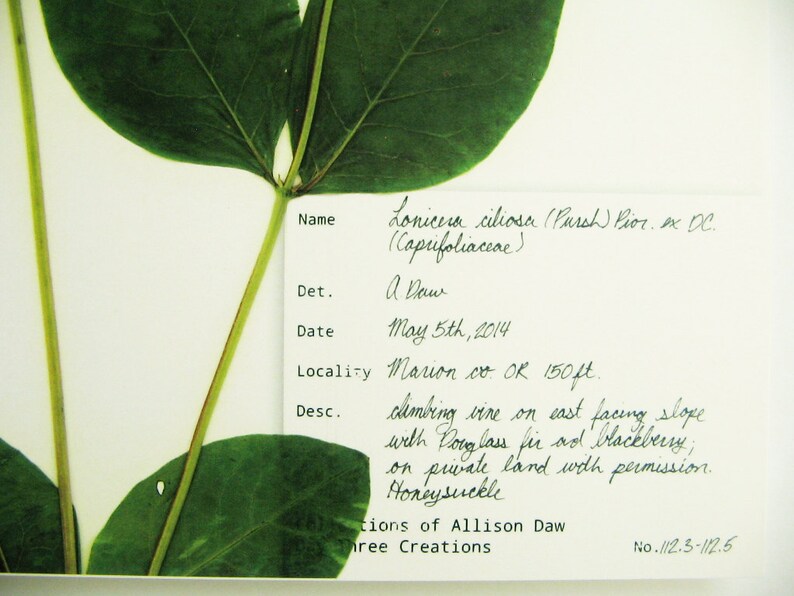 Name Lonicera ciliosa (Pursh) Pior. ex DC.
(Caprifoliaceae)
Det. A Daw
Date May 5th, 2014
Locality Marion co. OR 150ft.
Desc. climbing vine on east facing slope
with Douglass fir and blackberry;
on private land with permission.
Honeysuckle
tions of Allison Daw
Three Creations No.112.3-112.5